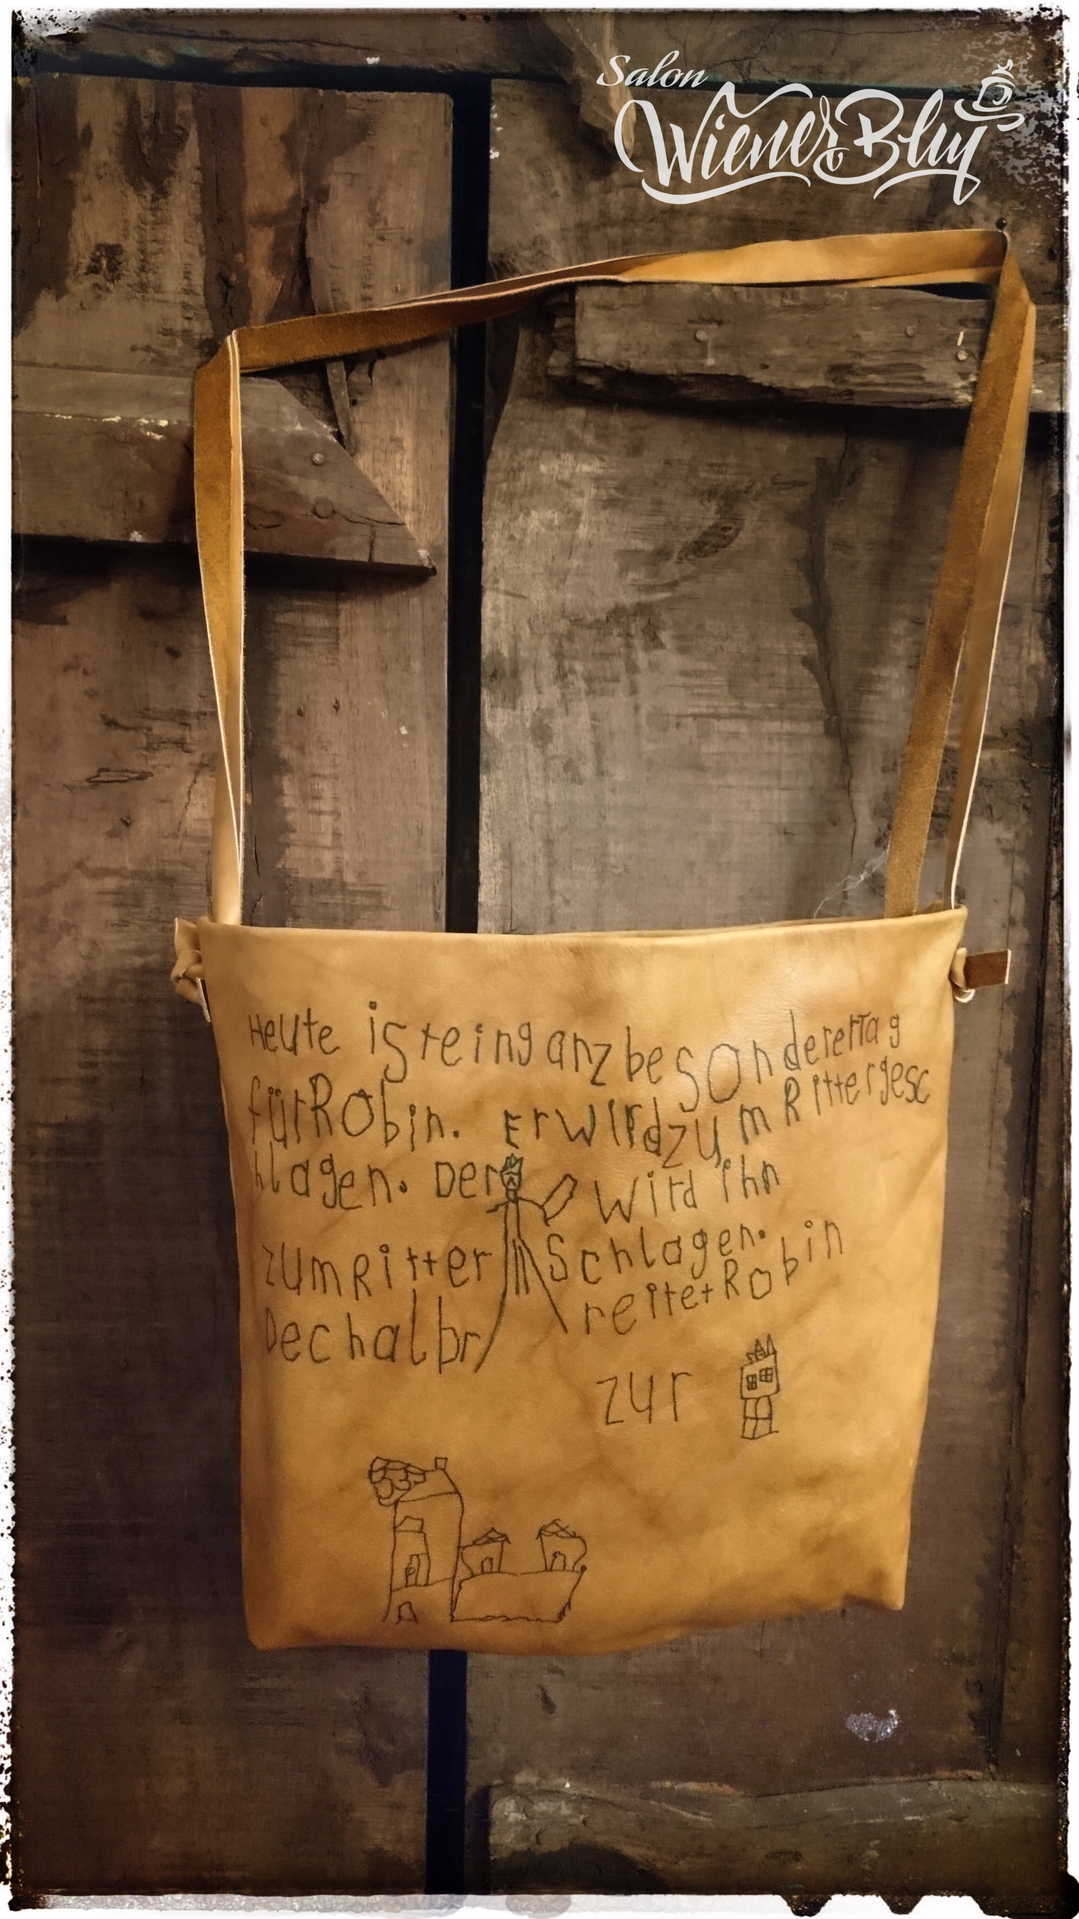 Salon
Wiener Blut
Heute isteinganzbesondererTag
fürRobin. ErwirdzumRittergesc
hlagen. Der wird ihn
zumRitter Schlagen.
Dechalbr reitetRobin
zur